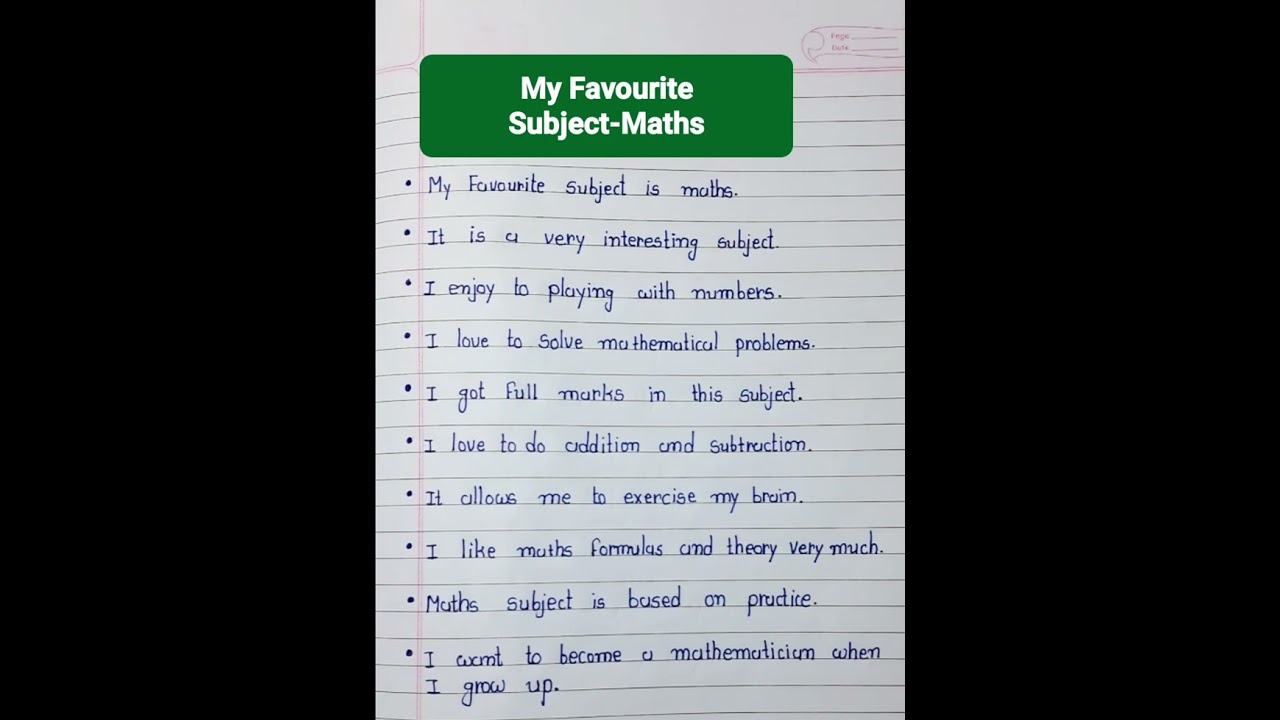 Page
Date
My Favourite
Subject-Maths
• My Favourite subject is maths.
• It is a very interesting subject.
• I enjoy to playing with numbers.
• I love to solve mathematical problems.
• I got full marks in this subject.
• I love to do addition and subtraction.
• It allows me to exercise my brain.
• I like maths formulas and theory very much.
• Maths subject is based on practice.
• I want to become a mathematician when
I grow up.